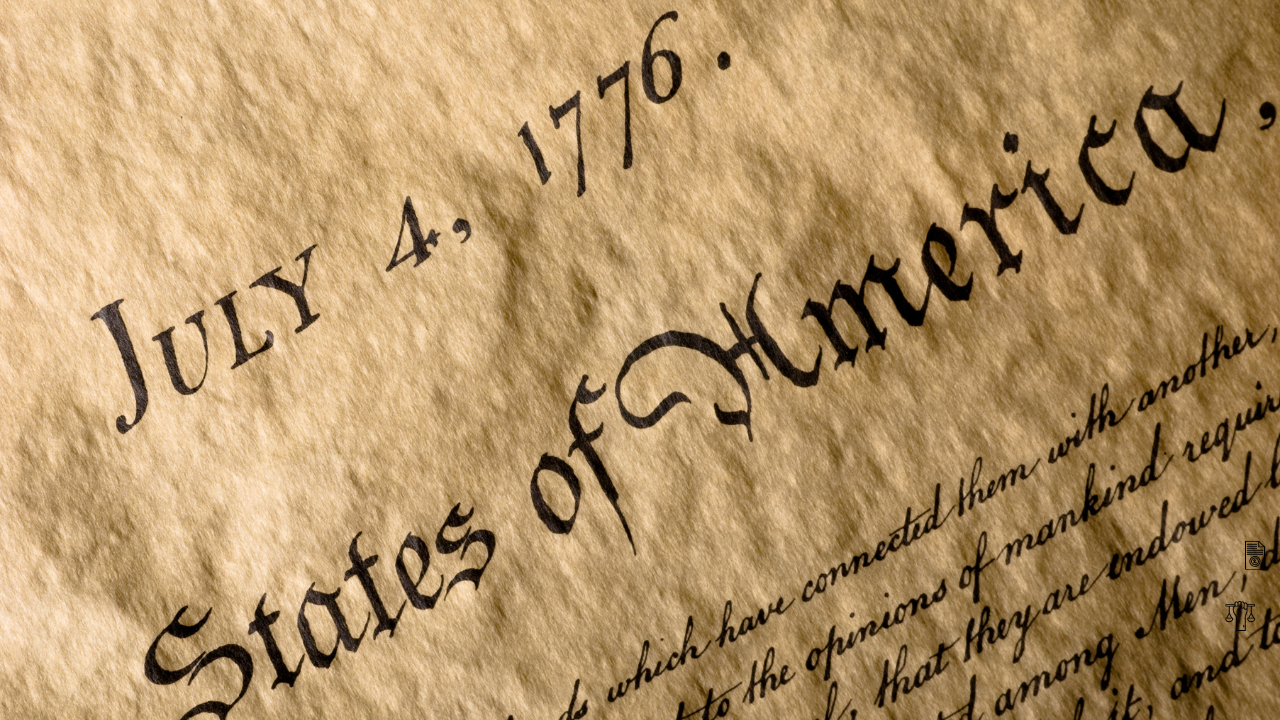 JULY 4, 1776.
States of America,
which have connected them with another,
to the opinions of mankind
that they are endowed
among Men,
it, and to